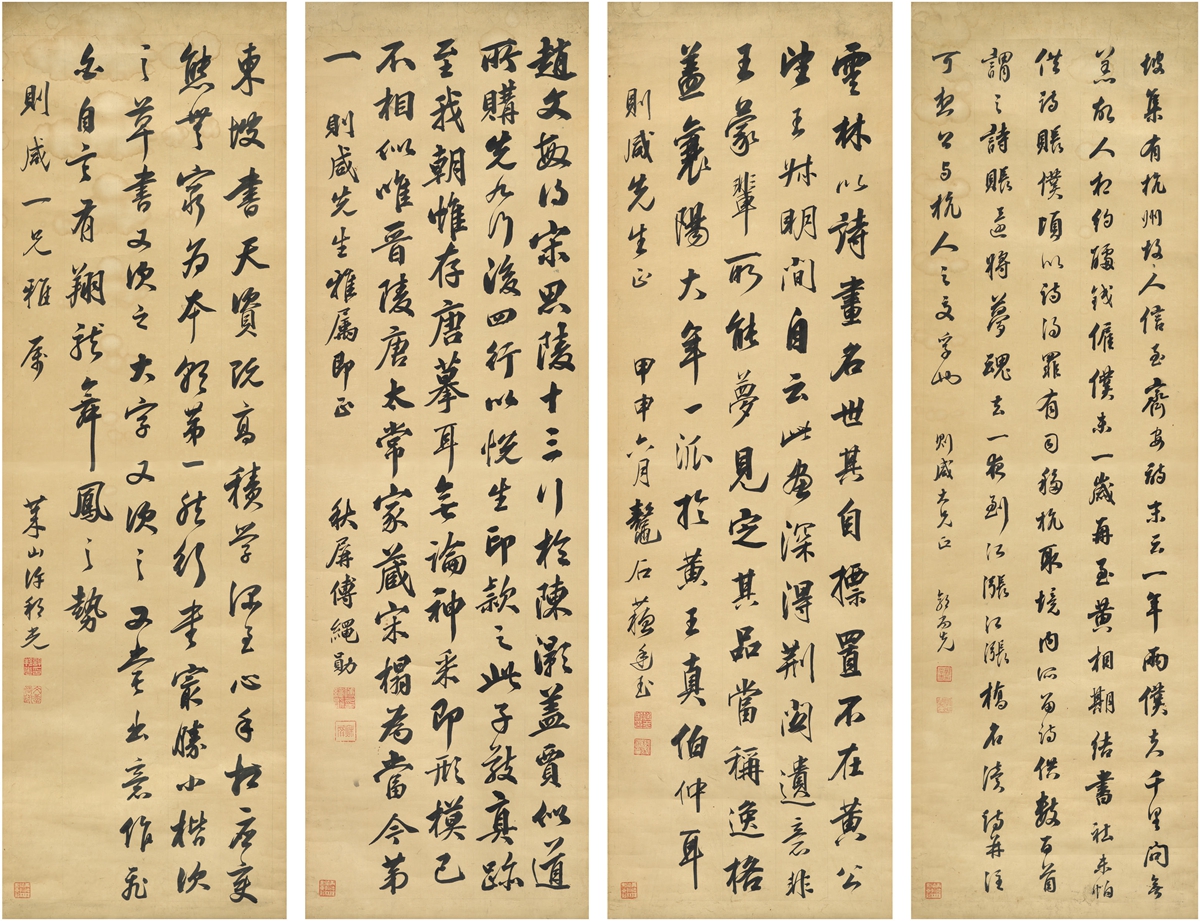 坡集有杭州故人信至齊安詩末云一年兩僕夫千里問無
恙故人相約醵錢僱僕夫一歲再至黃相期結書社未怕
供詩賬僕頃以詩得罪有司移杭取境內所留詩供數百首
謂之詩賬還將夢魂去一夜到江漲江漲橋名讀詩并注
可想公與杭人之交孚也
則咸大兄正
雲林以詩畫名世其自標置不在黃公
望王叔明間自云此畫深得荊關遺意非
王蒙輩所能夢見定其品當稱逸格
蓋襄陽大年一派於黃王真伯仲耳
則咸先生正
甲申六月鼇石蘇廷玉
趙文敏得宋思陵十三行於陳灝蓋賈似道
所購先九行後四行以悅生印款之此子敬真跡
至我朝惟存唐摹耳無論神采即形模已
不相似唯晉陵唐太常家藏宋搨為當今第
一
則咸先生雅屬即正
秋屏傅繩勛
東坡書天資既高積學深至心手相應變
態無窮為本朝第一然行書最勝小楷次
之草書又次之大字又次之又嘗出意作飛
白自言有翔龍舞鳳之勢
則咸一兄雅屬
萊山許乃